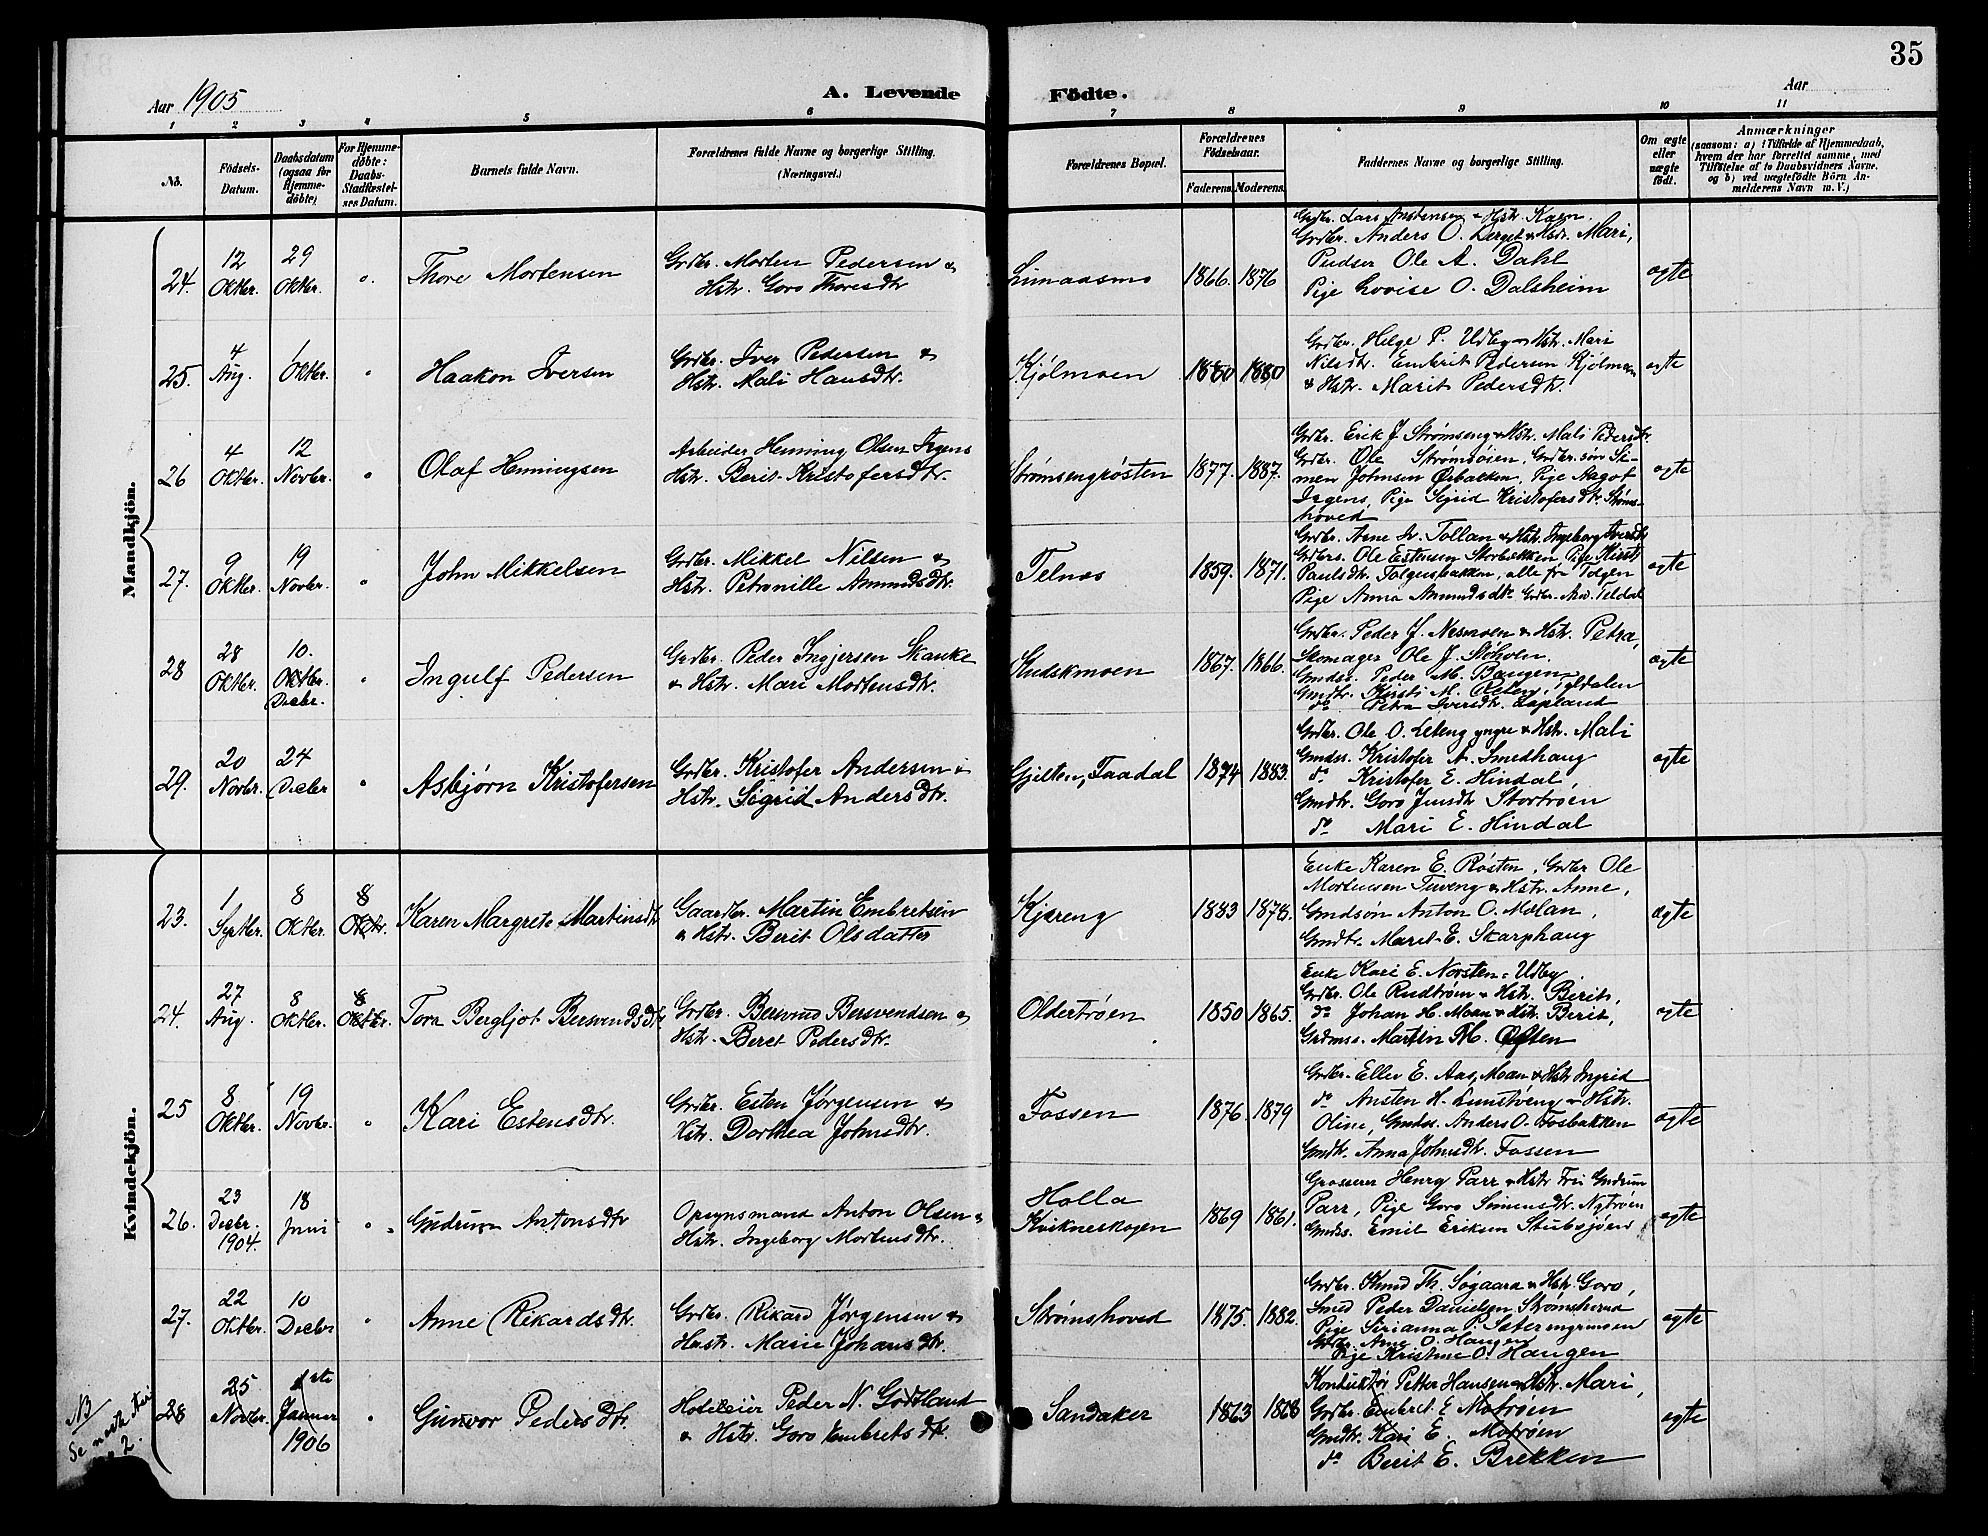 35
Aar 1905
A. Levende
Födte.
Aar
1 2 3 4 5 6 7 8 9 10 11
No.
Födsels-
Datum.
Daabsdatum
(ogsaa for
Hjemme-
döbte)
For Hjemme-
döbte:
Daabs-
Stadfæstel-
ses Datum.
Barnets fulde Navn.
Forældrenes fulde Navne og borgerlige Stilling.
(Næringsvei.)
Forældrenes Bopæl.
Forældrenes
Födselsaar.
Faderens. Moderens.
Faddernes Navne og borgerlige Stilling.
Om ægte
eller
uægte
födt.
Anmærkninger
(saasom: a) i Tilfælde af Hjemmedaab,
hvem der har forrettet samme, med
Tilföielse af to Daabsvidners Navne,
og b) ved uægtefödte Börn An-
melderens Navn m. V.)
Mandkjön.
24. 12 Oktbr. 29 Oktbr. Thore Mortensen
Grdbr. Morten Pedersen &
Hstr. Goro Thoresdtr
1866. 1876
Grdbr. Lars Anstensen & Hstr. Karn.
Grdbr. Anders O. & Hstr. Mari,
Pudser Ole A. Dahl
Pige Lovise O. Dalsheim
ægte
25. 4 Aug. 1 Oktbr. Haakon Iversen
Grdbr. Iver Pedersen &
Hstr. Mali Hansdtr.
Kjölmoen 1880 1880
Grdbr. Helge P. Udby & Hstr. Mari
Nilsdtr. Embrit Pedersen Kjölmoen
& Hstr. Marit Pedersdtr.
ægte
26 4 Oktbr. 12 Novbr. Olaf Henningsen
Arbeider Henning Olsen Irgens
Hstr. Berit Kristofersdtr.
Strömsengrösten 1877. 1887.
Grdbr. Erik J. Strömseng & Hstr. Mali Pedersdtr.
Grdbr. Ole Strömsöien, Grdbr. sön Si-
men Johnsen Örbakken, Pige Aagot
Irgens, Pige Sigrid Kristofersdtr. Ströms-
hoved
ægte
27. 9 Oktbr. 19 Novbr. John Mikkelsen
Grdbr. Mikkel Nilsen &
Hstr. Petronille Amundsdtr.
Telnæs 1859. 1871.
Grdbr. Arne Iv. Tollan & Hstr. Ingeborg Iversdtr
Grdbrs. Ole Estensen Storbækken Pige Kirsti
Paulsdtr. Tolgensbakken, alle fra Tolgen
Pige Anna Amundsdtr. Grdbr.
ægte
28 28 Oktbr. 10. Oktbr. Decbr. Ingulf Pedersen
Grdbr. Peder Ingjersen Skanke
& Hstr. Mari Mortensdtr.
1867. 1866.
Grdbr. Peder J. Nesmoen & Hstr. Petra,
Skomager Ole J. Stöhölen.
Gmdss. Peder M. Bangen
Gmdtr. Kirsti M. Tyldalen
do Petra Iversdtr. Lapland
ægte
29. 20 Novbr. 24 Decbr Asbjörn Kristofersen
Grdbr. Kristofer Andersen &
Hstr. Sigrid Andersdtr.
Gjelten, Faadal 1874 1883.
Grdbr. Ole O. Leteng yngre & Hstr. Mali
Gmdss. Kristofer A. Smedhaug
do Kristofer E. Hindal,
Gmdtr. Goro Jensdtr Stortröen
do Mari E. Hindal
ægte
Kvindekjön.
23. 1 Septbr. 8 Oktbr. 8 Oktr. Karen Margrete Martinsdtr
Gaardbr. Martin Embretsen
& Hstr. Berit Olsdatter
Kjæreng 1883 1878.
Enke Karen E. Rösten, Grdbr Ole
Mortensen Tuveng & Hstr. Anne,
Gmdsön Anton O. Molan,
Gmdtr. Maret E. Skarphaug
ægte
24. 27 Aug. 8 Oktbr. 8 Oktbr. Tora Bergljot Bersvendsdtr
Grdbr. Bersvend Bersvendsen &
Hstr. Beret Pedersdtr.
Oldertröen 1850 1865.
Enke Kari E. Norsten, Udby
Grdbr. Ole Rudtröen & Hstr. Berit,
do Johan H. Moan & Hstr. Berit,
Grdmss. Martin M. Öiften
ægte
25 8 Oktbr. 19 Novbr. Kari Estensdtr.
Grdbr. Esten Jörgensen &
Hstr. Dorthea Johnsdtr.
Fossen 1876 1879
Grdbr. Ellev E. Aas, Moan & Hstr Ingrid
do Austen H. Lunstveng & Hstr.
Oline, Gmdss. Anders O. Fosbakken
Gmdtr. Anna Johnsdtr. Fossen
ægte
26. 23 Decbr. 1904. 18 Juni Gudrun Antonsdtr
Opsynsmand Anton Olsen &
Hstr. Ingeborg Mortensdtr.
Holla
Kvikneskogen 1869 1861.
Grosserer Henry Parr & Hstr Fru Gudrun
Parr, Pige Goro Simensdtr. Nytröen
Gmdss. Emil Eriksen Stubsjöen
ægte
27. 22 Oktbr. 10 Decbr Anne Rikardsdtr.
Grdbr. Rikard Jörgensen &
Hustr. Marie Johansdtr.
Strömshoved 1875. 1882.
Grdbr. Knud Th. Sögaard & Hstr. Goro,
Smed Peder Danielsen Strömshoved
Pige Sirianna P. Sæterengmoen
Grdbr. Arne O. Haugen
Pige Kristine O. Haugen
ægte
NB
Se næste
2.
28 25 Novbr. 1ste Januar 1906 Gunvor Pedersdtr.
Hoteleier Peder N. Godtland
& Hstr. Goro Embretsdtr.
Sandaker 1863 1868
Konduktör Petter Hansen & Hstr. Mari,
Grdbr. Embret E Motröen
Gmdtr. Kari E. Motröen
do Berit E. Brekken
ægte